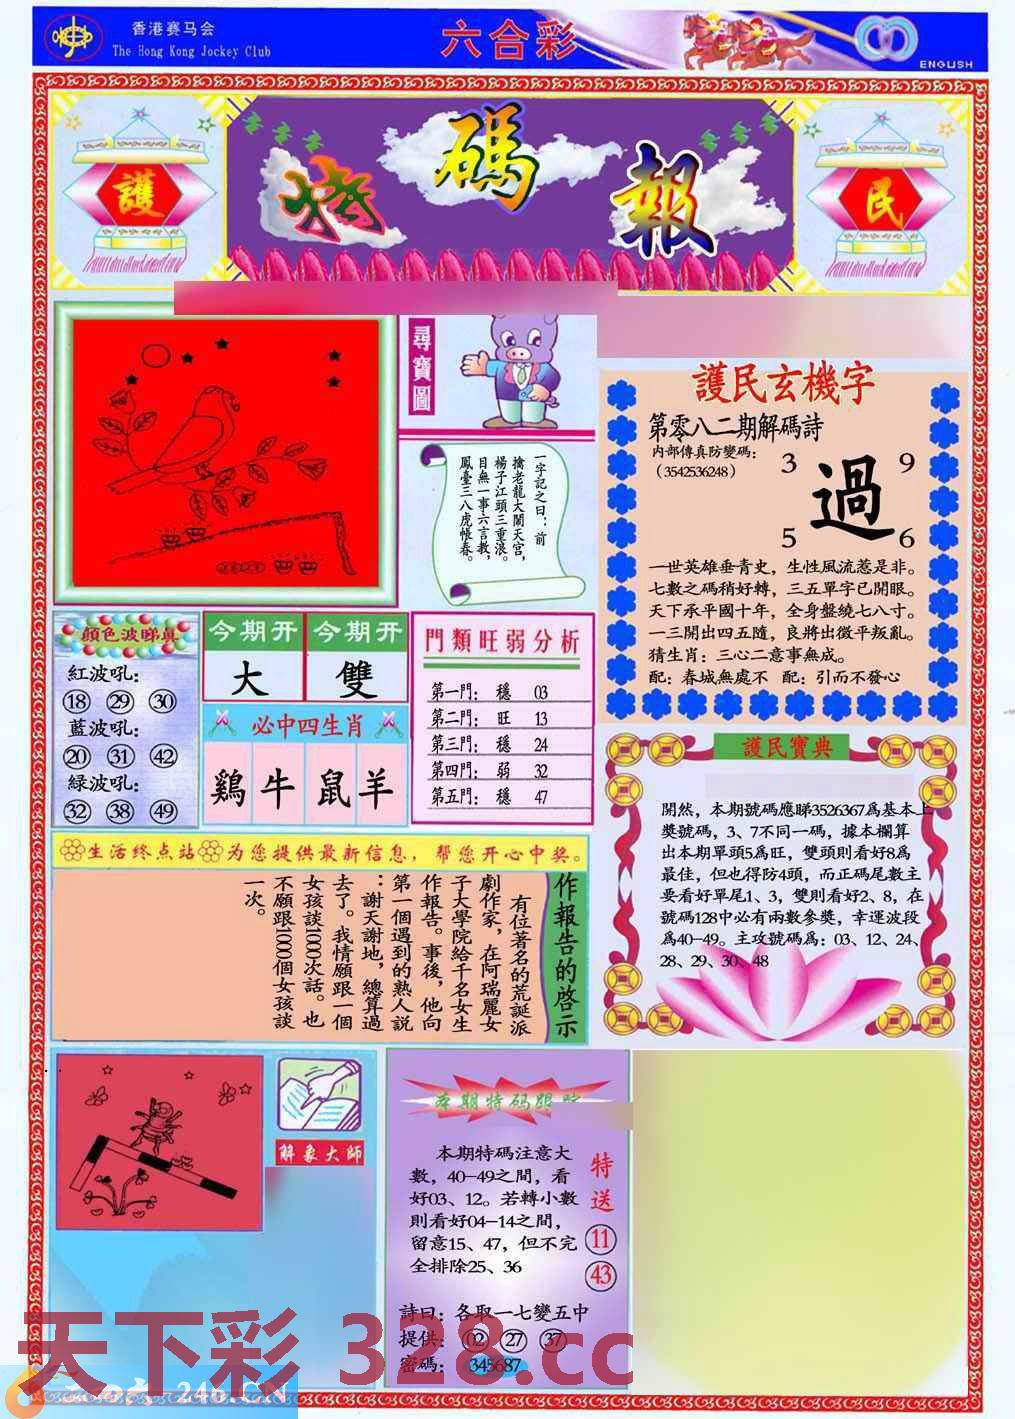 香港赛马会
The Hong Kong Jockey Club
六合彩
ENGLISH
護
特碼報
民
尋寶圖
一字記之曰：前
擒老龍大鬧天宮，
楊子江頭三重浪。
目無一事六言教，
鳳臺三八虎悵春。
護民玄機字
第零八二期解碼詩
内部傳真防變碼：
（3542536248）
3 9
過
5 6
一世英雄垂青史，生性風流惹是非。
七數之碼稍好轉，三五單字已開眼。
天下承平國十年，全身盤繞七八寸。
一三開出四五隨，良將出徵平叛亂。
猜生肖：三心二意事無成。
配：春城無處不 配：引而不發心
顏色波睇真
紅波吼：
18 29 30
藍波吼：
20 31 42
緑波吼：
32 38 49
今期開 今期開
大 雙
必中四生肖
鷄 牛 鼠 羊
門類旺弱分析
第一門： 穩 03
第二門： 旺 13
第三門： 穩 24
第四門： 弱 32
第五門： 穩 47
護民寶典
開然，本期號碼應睇3526367爲基本上
獎號碼，3、7不同一碼，據本欄算
出本期單頭5爲旺，雙頭則看好8爲
最佳，但也得防4頭，而正碼尾數主
要看好單尾1、3，雙則看好2、8，在
號碼128中必有兩數參獎，幸運波段
爲40-49。主攻號碼爲：03、12、24、
28、29、30、48
生活终点站 为您提供最新信息，帮您开心中奖。
作報告的啓示
有位著名的荒誕派
劇作家，在阿瑞麗女
子大學院給千名女生
作報告。事後，他向
第一個遇到的熟人説
：謝天謝地，總算過
去了。我情願跟一個
女孩談1000次話。也
不願跟1000個女孩談
一次。
解象大師
本期特码跟踪
本期特碼注意大
數，40-49之間，看
好03、12。若轉小數
則看好04-14之間，
留意15、47，但不完
全排除25、36
特送
11
43
詩曰：各取一七變五中
提供： 02 27 37
密碼： 345687
天下彩 328.cc
246.CN